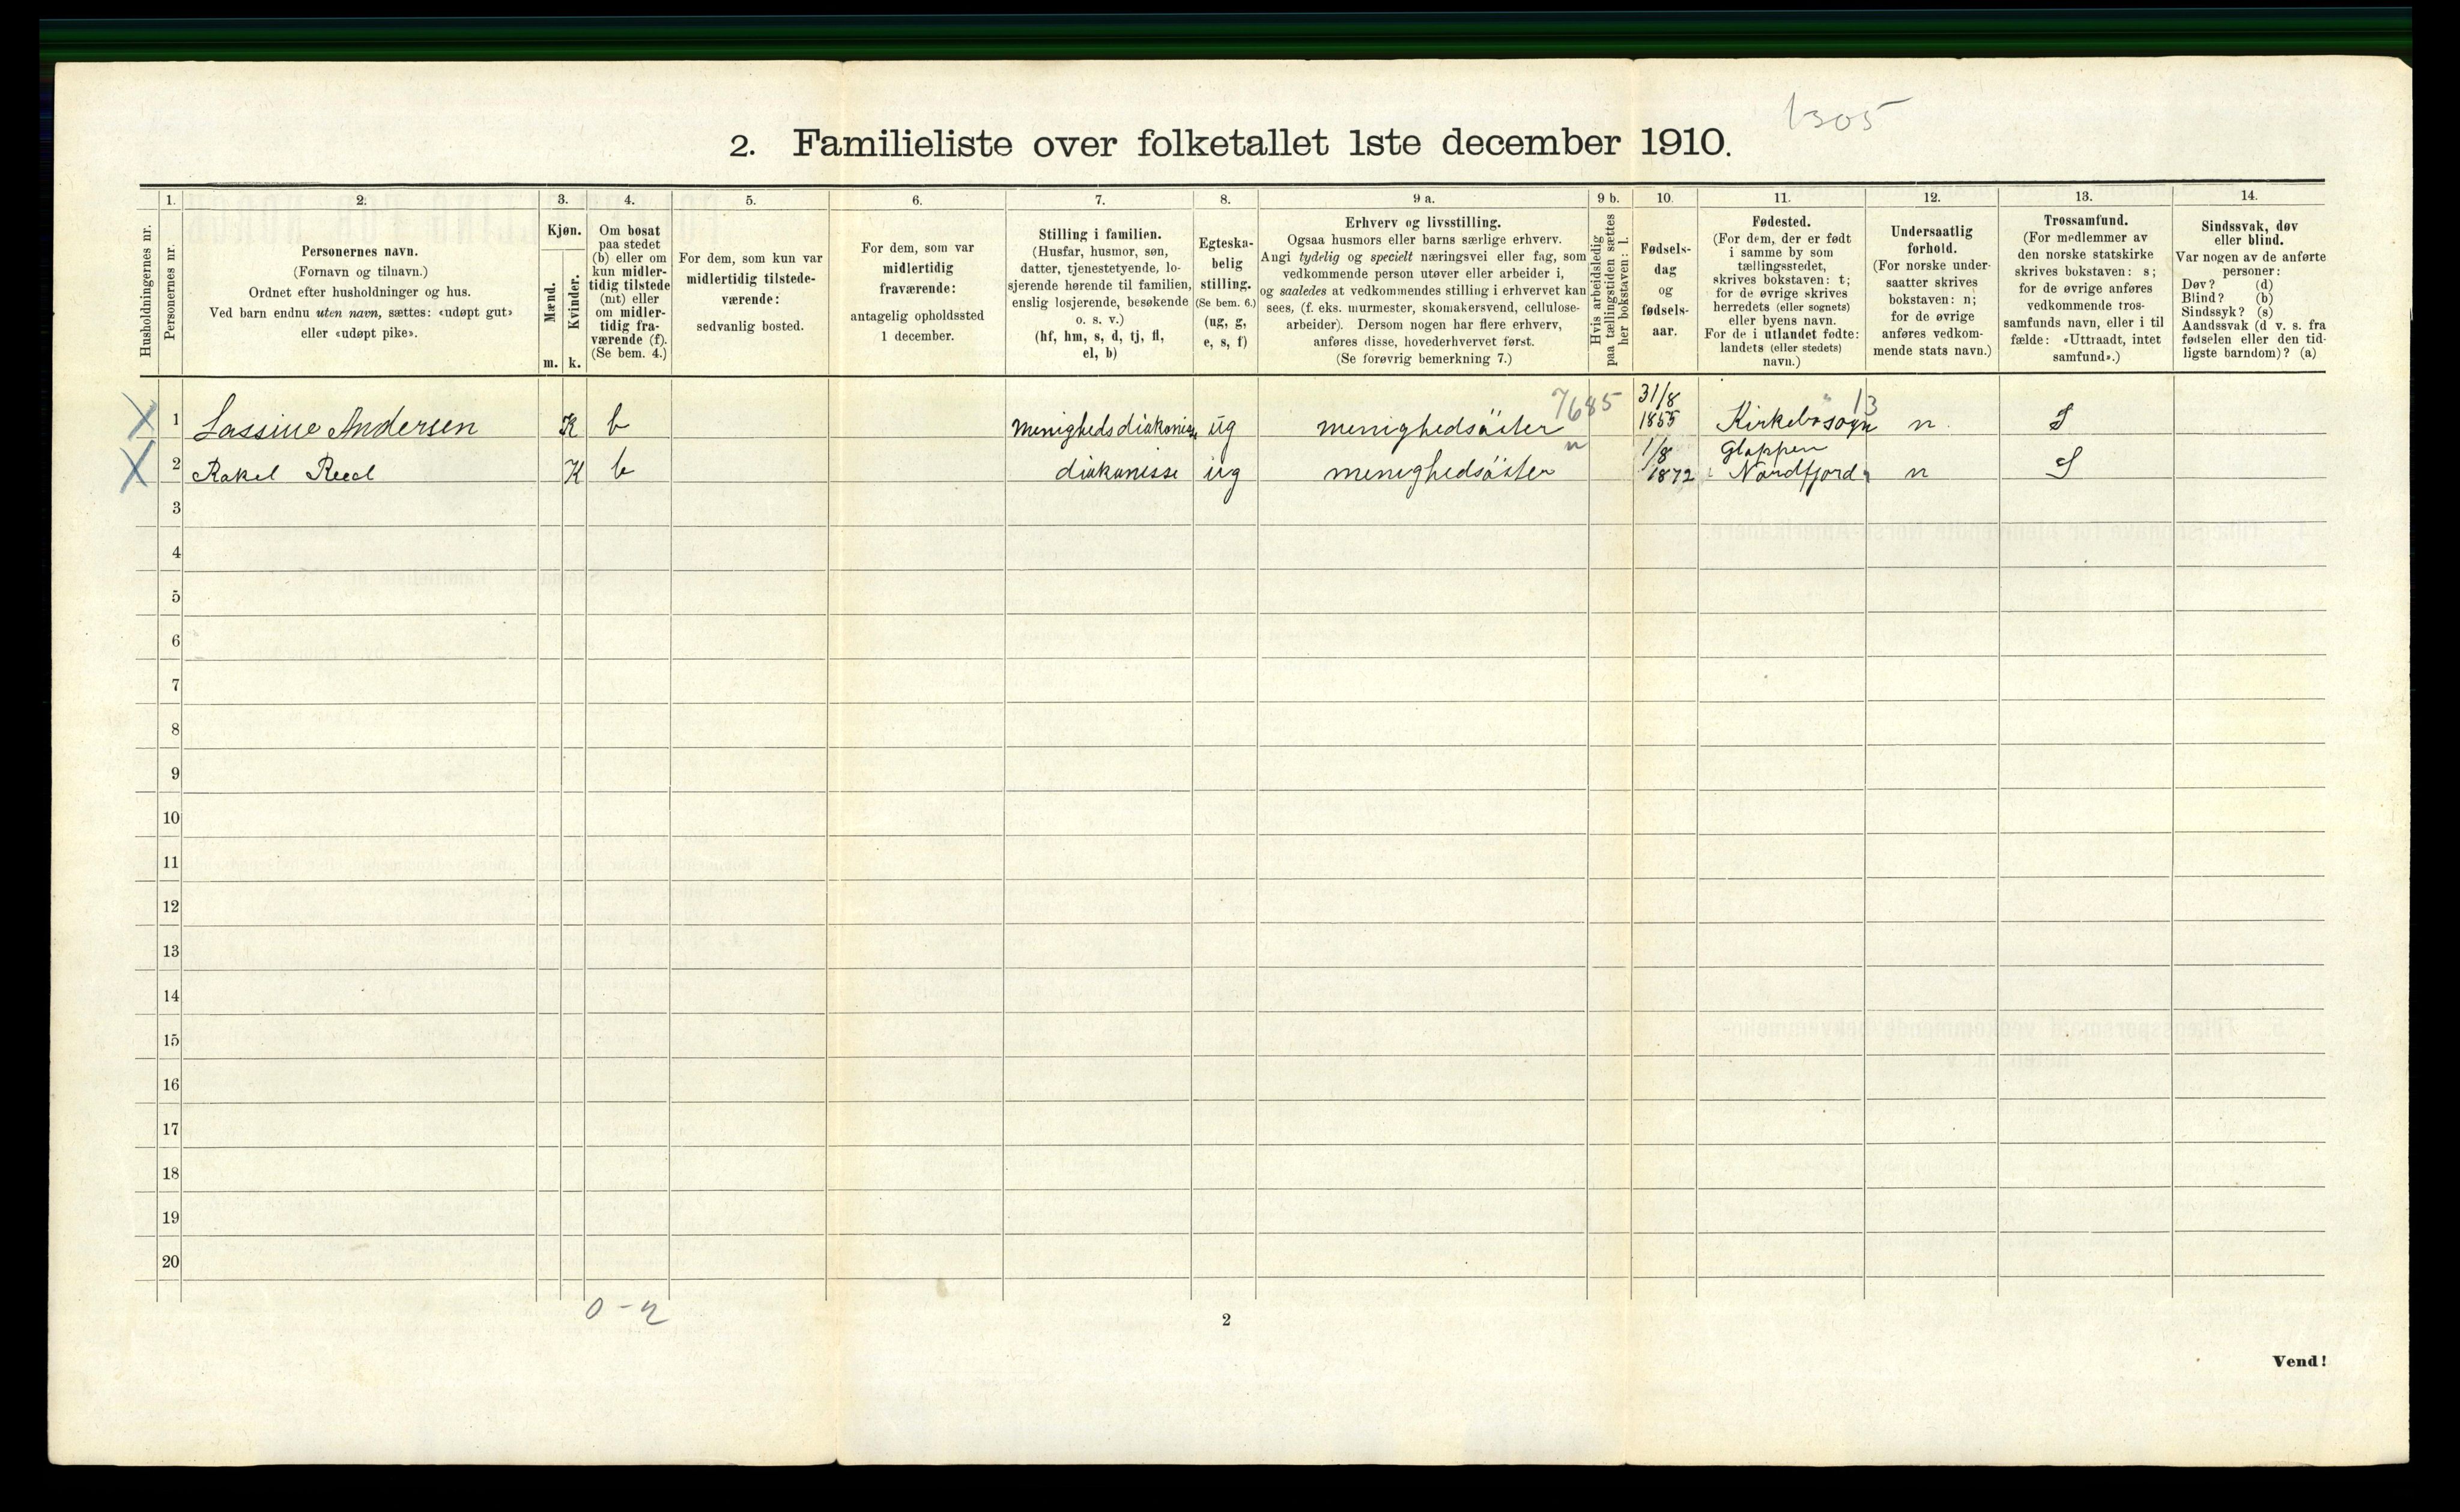 1305
2. Familieliste over folketallet 1ste december 1910.
Husholdningernes nr.
1.
Personernes nr.
2.
Personernes navn.
(Fornavn og tilnavn.)
Ordnet efter husholdninger og hus.
Ved barn endnu uten navn, sættes: «udøpt gut»
eller «udøpt pike».
3.
Kjøn.
Mænd.
Kvinder.
m. k.
4.
Om bosat
paa stedet
(b) eller om
kun midler-
tidig tilstede
(mt) eller
om midler-
tidig fra-
værende (f).
(Se bem. 4.)
5.
For dem, som kun var
midlertidig tilstede-
værende:
sedvanlig bosted.
6.
For dem, som var
midlertidig
fraværende:
antagelig opholdssted
1 december.
7.
Stilling i familien.
(Husfar, husmor, søn,
datter, tjenestetyende, lo-
sjerende hørende til familien,
enslig losjerende, besøkende
o. s. v.)
(hf, hm, s, d, tj, fl,
el, b)
8.
Egteska-
belig
stilling.
(Se bem. 6.)
(ug, g,
e, s, f)
9 a.
Erhverv og livsstilling.
Ogsaa husmors eller barns særlige erhverv.
Angi tydelig og specielt næringsvei eller fag, som
vedkommende person utøver eller arbeider i,
og saaledes at vedkommendes stilling i erhvervet kan
sees, (f. eks. murmester, skomakersvend, cellulose-
arbeider). Dersom nogen har flere erhverv,
anføres disse, hovederhvervet først.
(Se forøvrig bemerkning 7.)
9 b.
Hvis arbeidsledig
paa tællingstiden sættes
her bokstaven: l.
10.
Fødsels-
dag
og
fødsels-
aar.
11.
Fødested.
(For dem, der er født
i samme by som
tællingsstedet,
skrives bokstaven: t;
for de øvrige skrives
herredets (eller sognets)
eller byens navn.
For de i utlandet fødte:
landets (eller stedets)
navn.)
12.
Undersaatlig
forhold.
(For norske under-
saatter skrives
bokstaven: n;
for de øvrige
anføres vedkom-
mende stats navn.)
13.
Trossamfund.
(For medlemmer av
den norske statskirke
skrives bokstaven: s;
for de øvrige anføres
vedkommende tros-
samfunds navn, eller i til
fælde: «Uttraadt, intet
samfund».)
14.
Sindssvak, døv
eller blind.
Var nogen av de anførte
personer:
Døv? (d)
Blind? (b)
Sindssyk? (s)
Aandssvak (d v. s. fra
fødselen eller den tid-
ligste barndom)? (a)
X 1 Lassine Andersen K b menighedsdiakonisse ug menighedsöster 7685 31/8 1855 Kirkebösogn 13 n. S
X 2 Rakel Reed K b diakonisse ug menighedsöster n 1/8 1872 Gloppen Nordfjord n S
3
4
5
6
7
8
9
10
11
12
13
14
15
16
17
18
19
20
0-2
2
Vend!